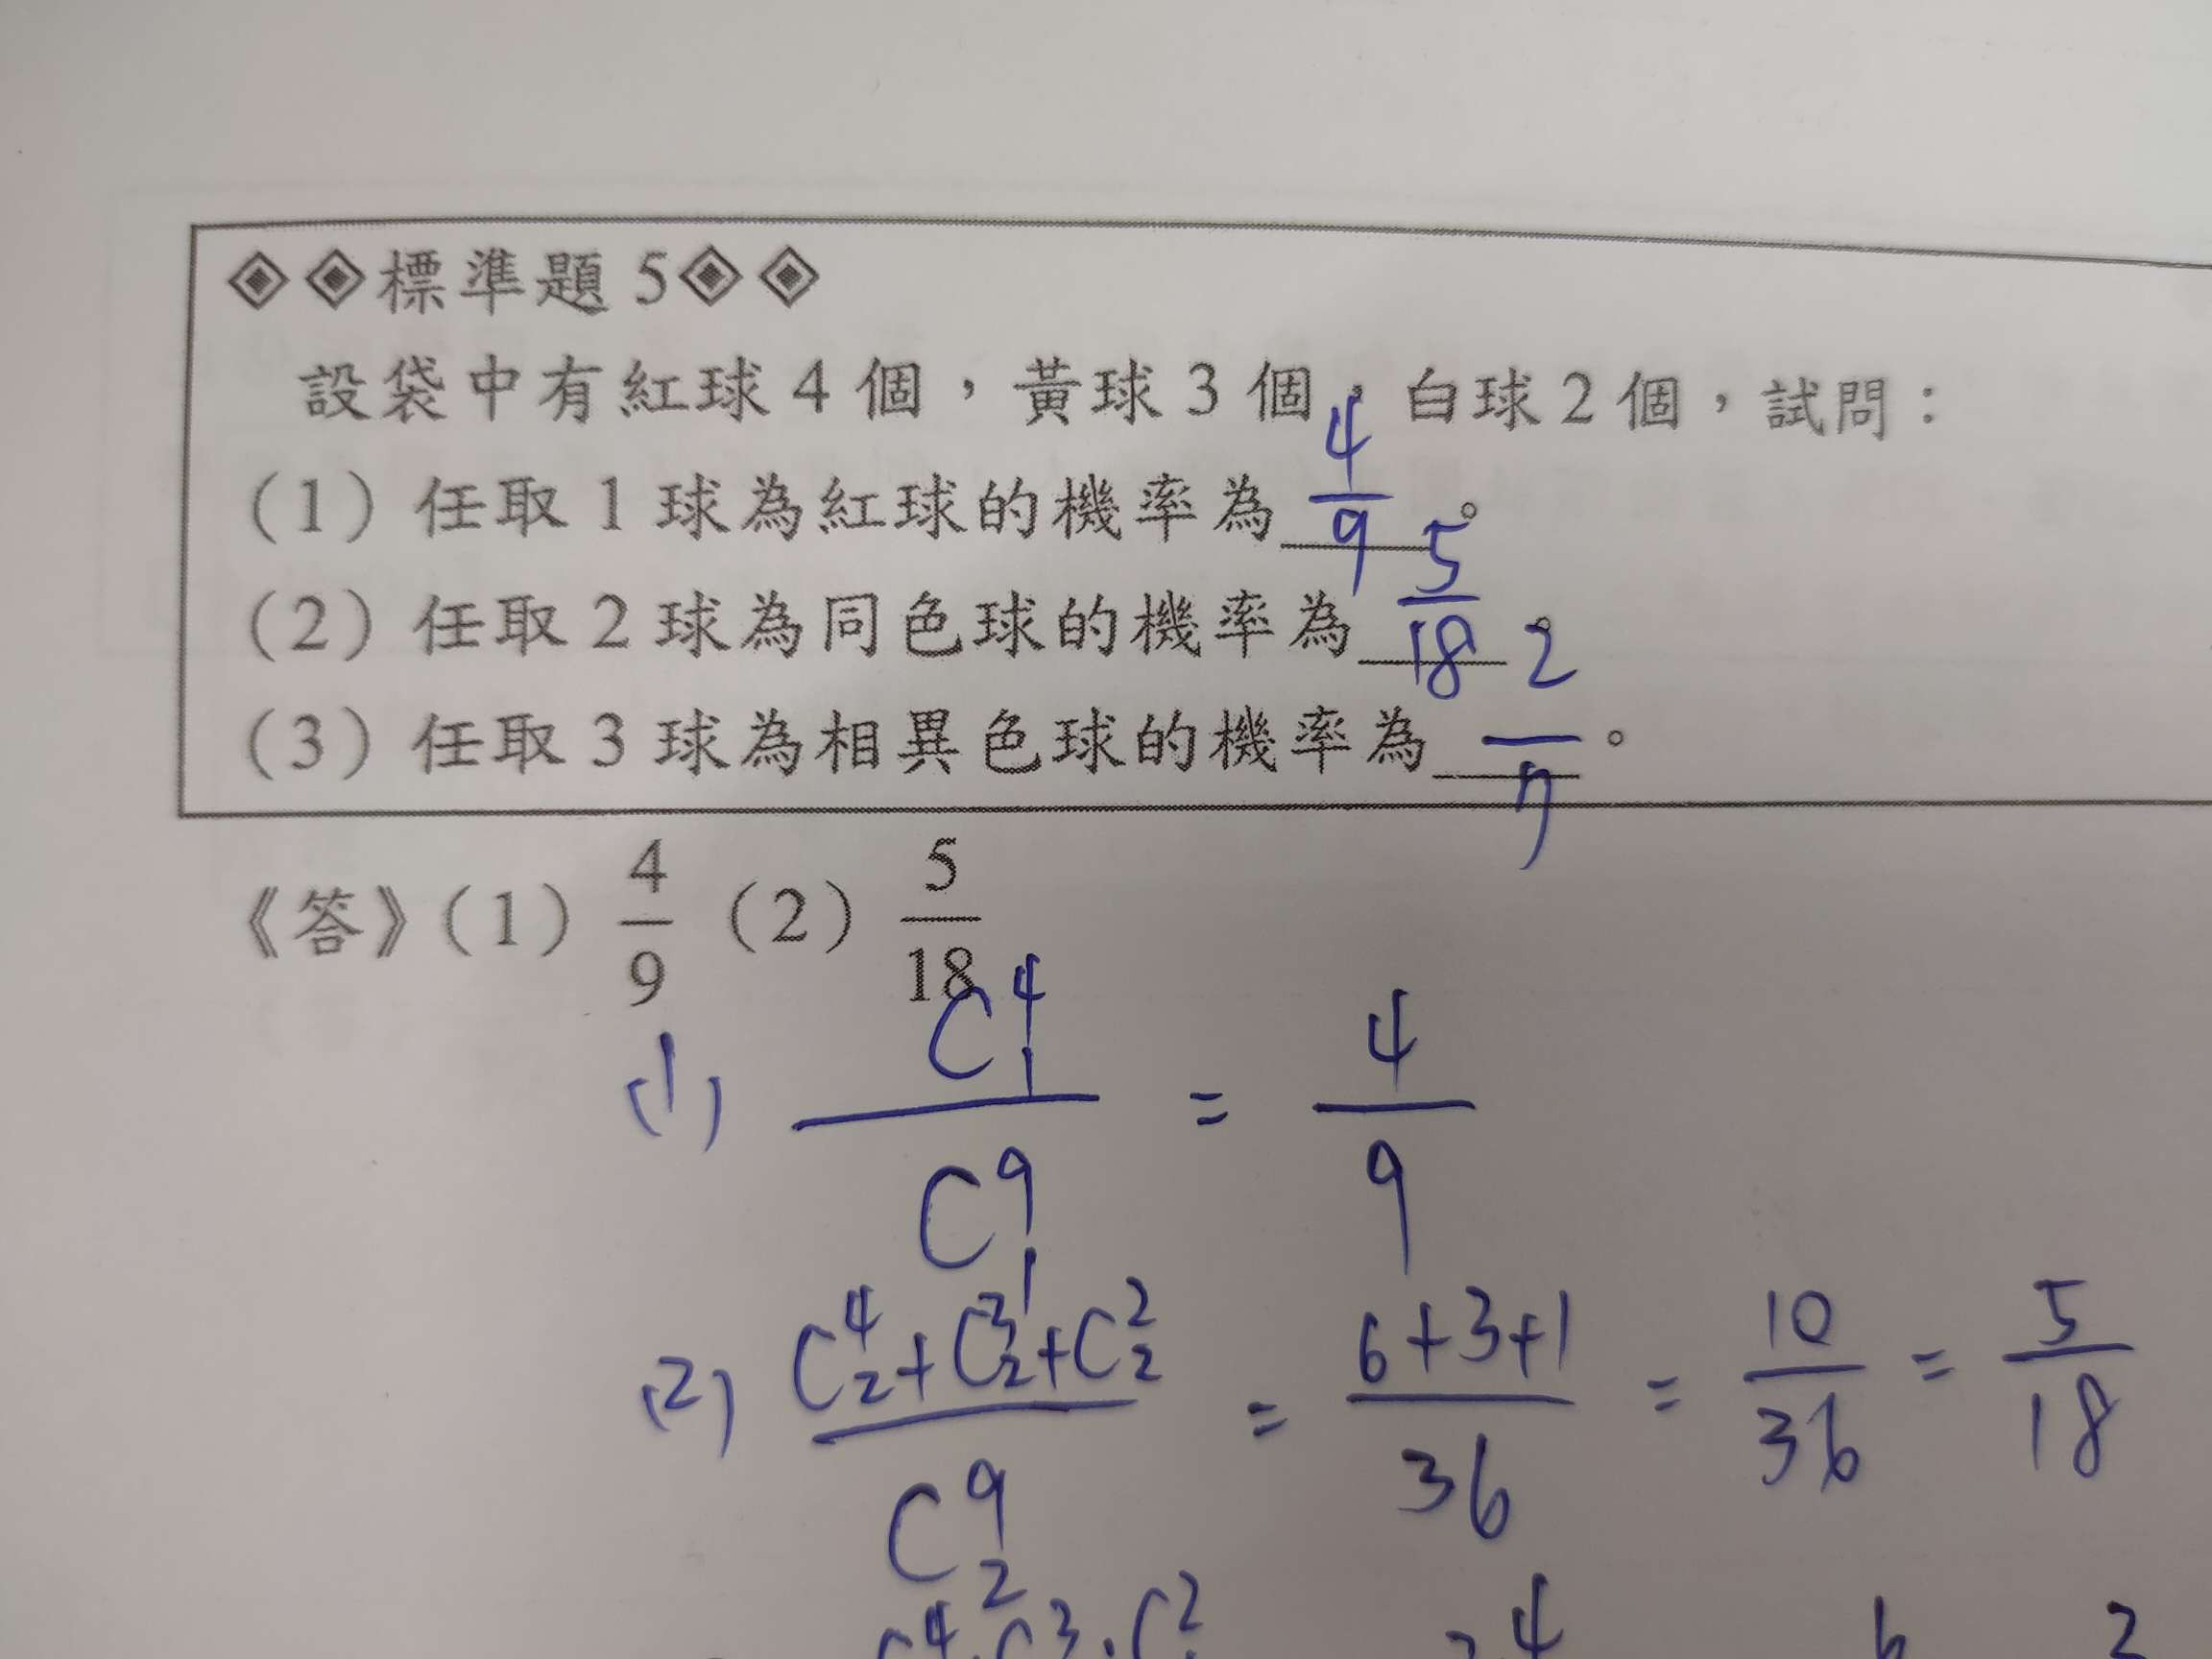 ◈◈標準題 5◈◈
設袋中有紅球 4 個，黃球 3 個，白球 2 個，試問：
（1）任取 1 球為紅球的機率為 4/9 。
（2）任取 2 球為同色球的機率為 5/18 。
（3）任取 3 球為相異色球的機率為 2/7 。
《答》（1） 4/9 （2） 5/18
(1) C⁴₁ / C⁹₁ = 4/9
(2) C⁴₂+C³₂+C²₂ / C⁹₂ = 6+3+1 / 36 = 10/36 = 5/18
C⁴·C³·C² 4 6 2